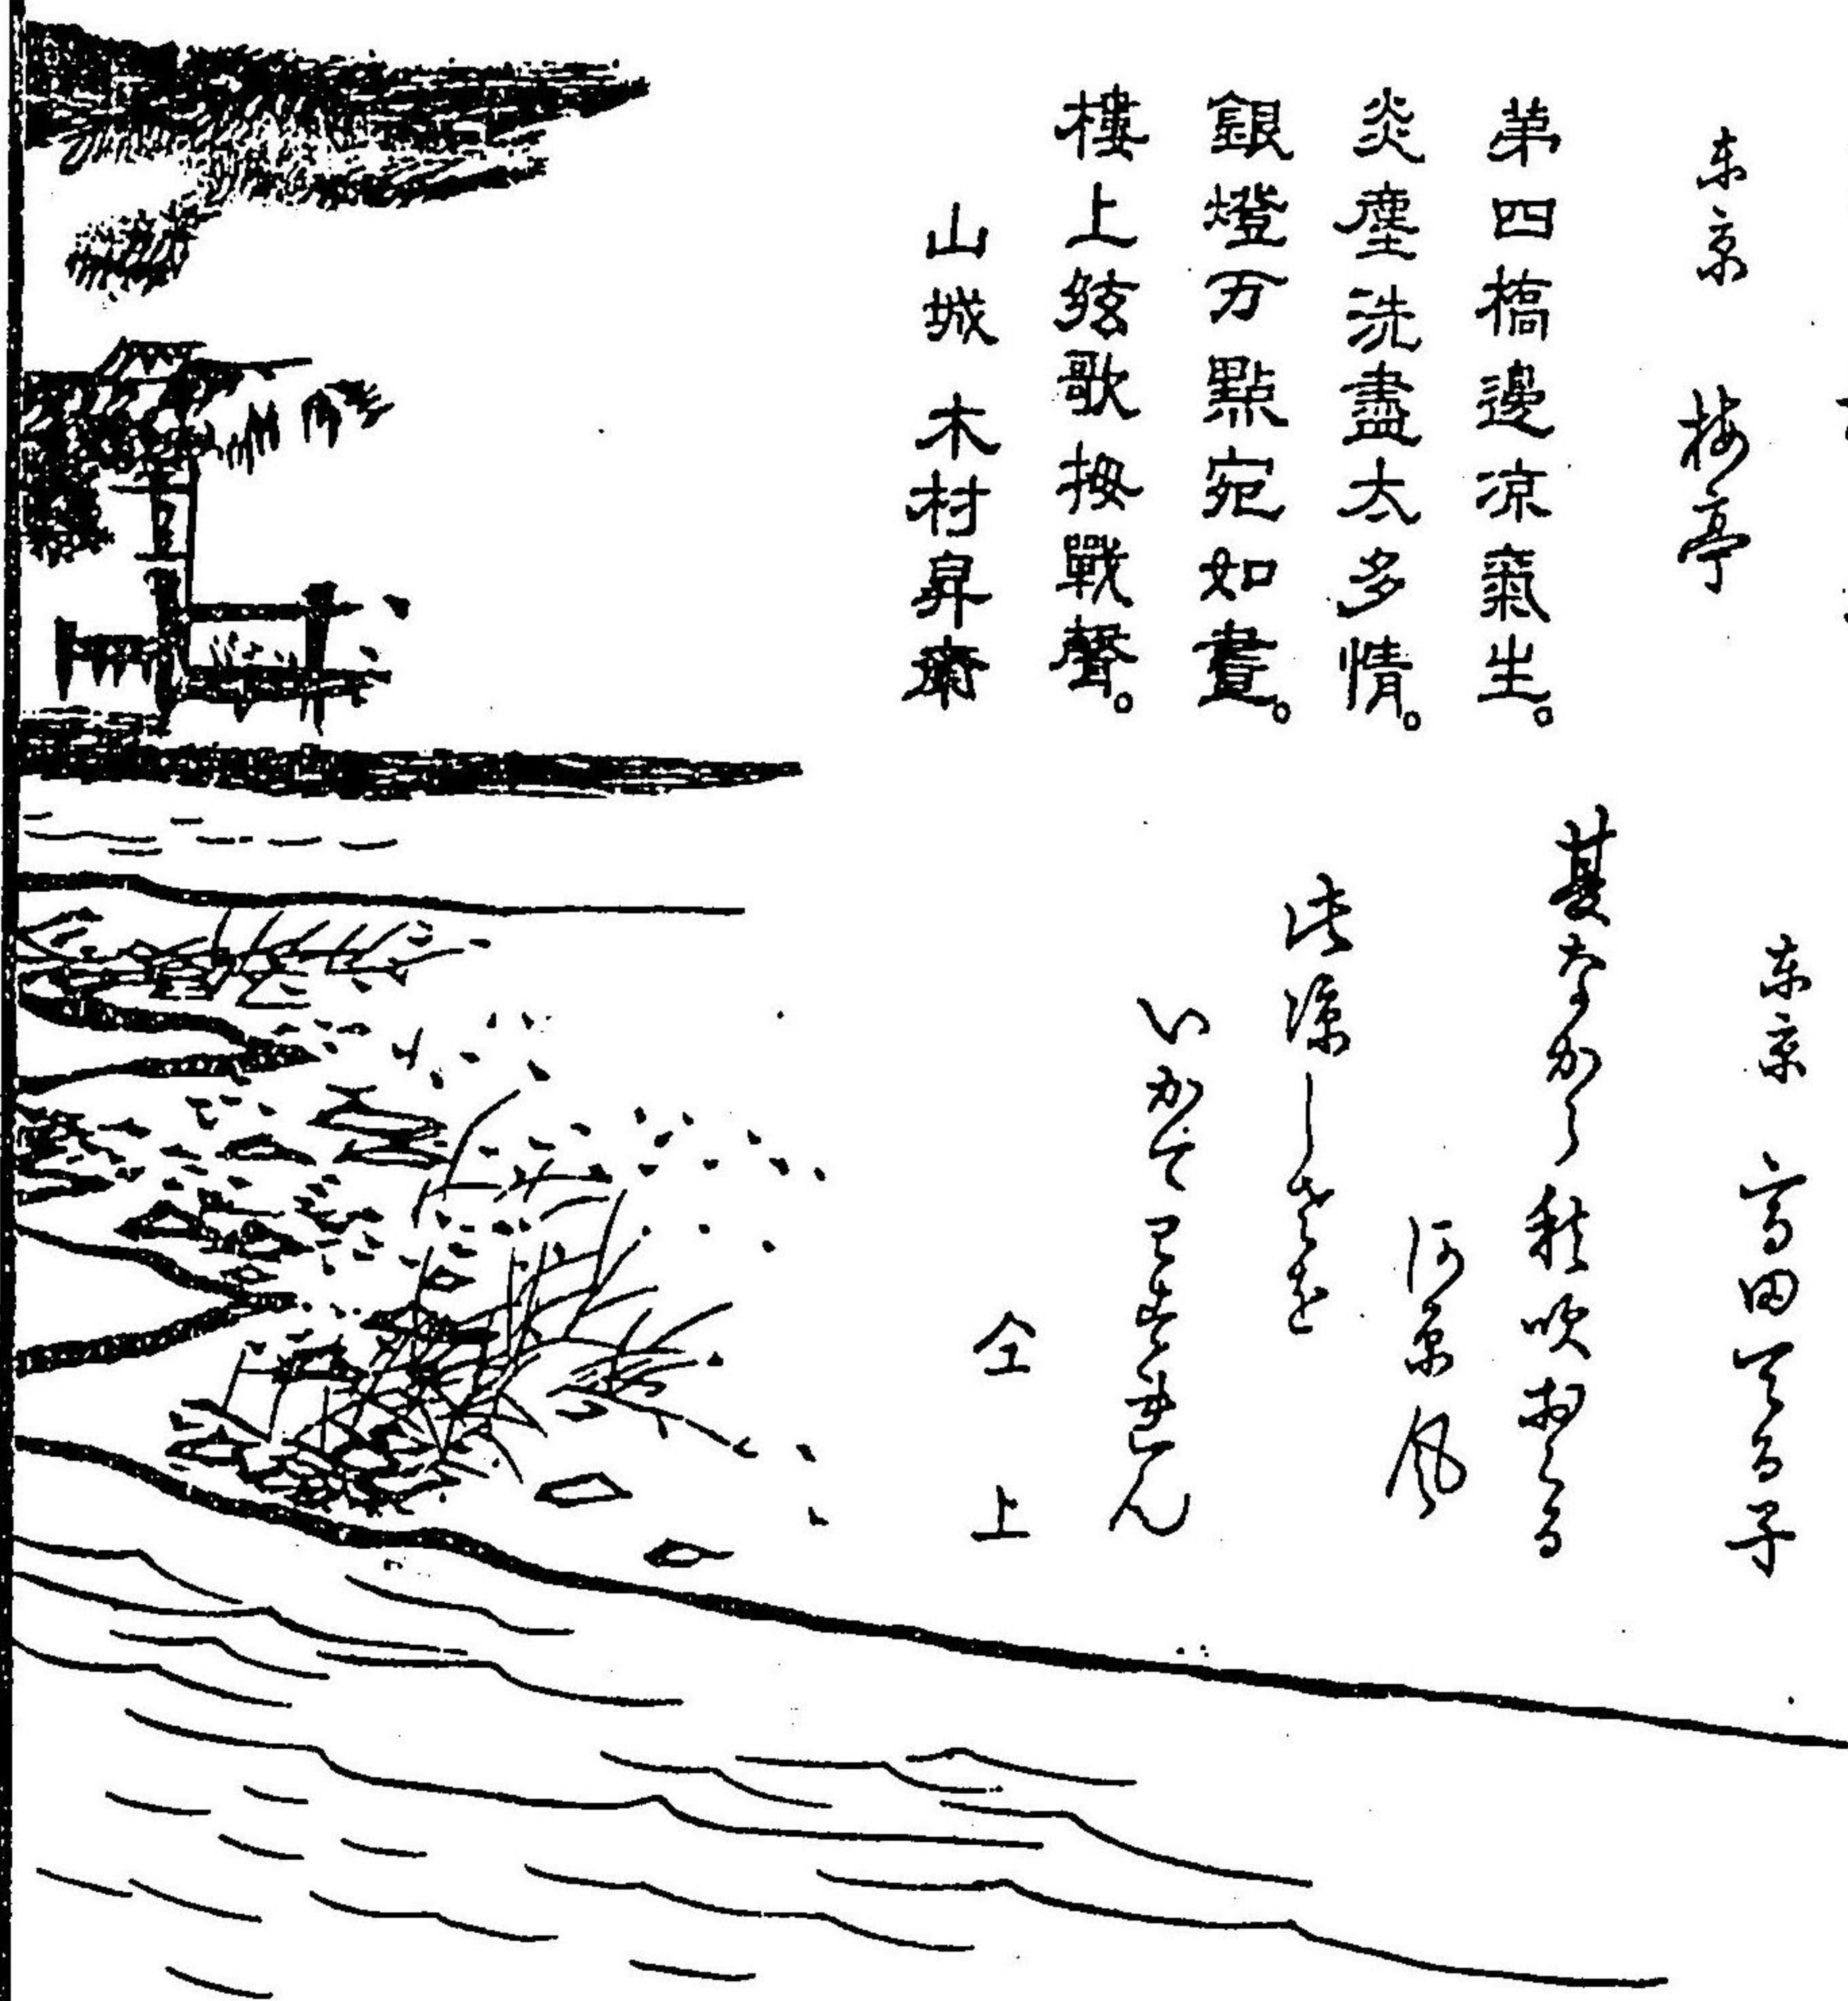 東京 梅亭
第四橋邊凉氣生。
炎塵洗盡太多情。
銀燈万點宛如晝。
樓上絃歌按戰聲。
山城 木村昇齋
東京 高田てる子
夏なから秋吹おくる
河原風
此涼しさを
いかてわすれん
仝上